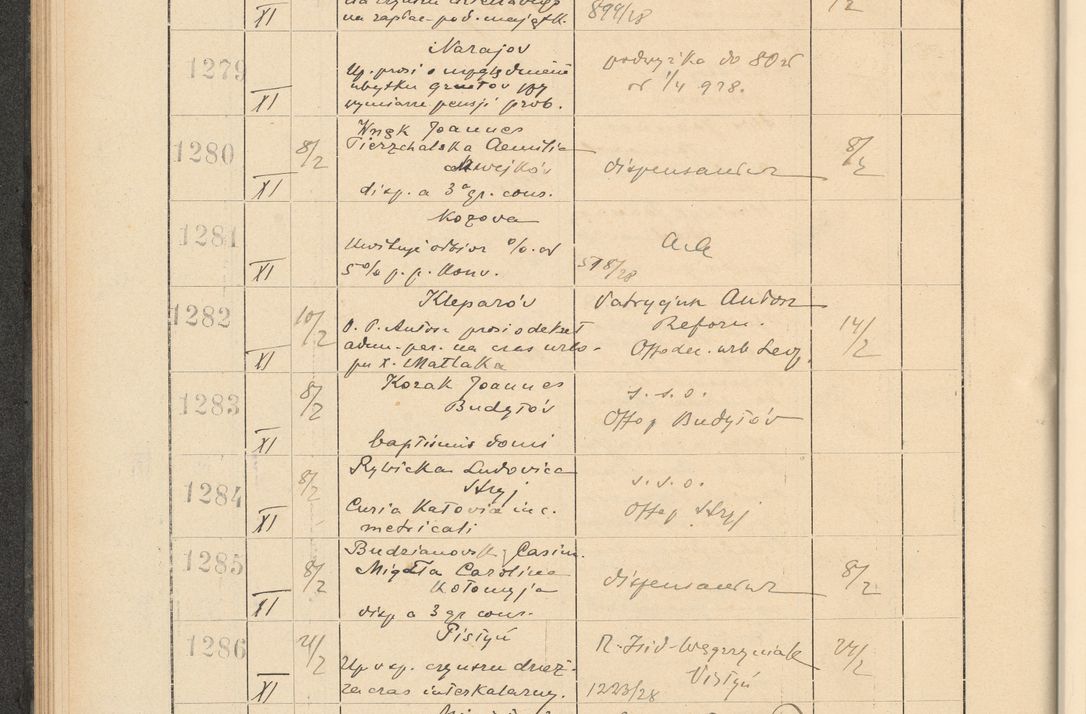 XI
na zaplac. pod. majątk.
899/28
/2
1279
XI
Narajov
Up. prosi o uwzględnienie
ubytku gruntov przy
wymiarze pensji prob.
podwyżka do 80 zł
od 1/4 928.
1280
XI
8/2
Joannes
Pierzchalska Aemilia
disp. a 3° gr. cons.
dispensantur
8/2
1281
XI
Kozova
odbior % od
5% p. p. konv.
a.a
598/28
1282
XI
10/2
Kleparóv
O. P. Anton prosi o dekret
adm. par. na czas urlo-
pu X. Matlaka
Patrycjusz Anton
Reform.
14/2
1283
XI
8/2
Kozak Joannes
Budyłóv
baptismis domi
s. s. o.
Offo p Budyłóv
1284
XI
8/2
Rybicka Ludovica
Stryj
Curia Katovic inc.
metricati
s. s. o.
Offo p Stryj
1285
XI
8/2
Budzianovsk Casim.
Migdła Carolina
Kołomyja
disp a 3 gr cons.
dispensantur
8/2
1286
XI
21/2
Pistyń
Up v sp. czynszu dzież-
za czas interkalarny.
Węgrzyniak
Pistyń
1223/28
24/2